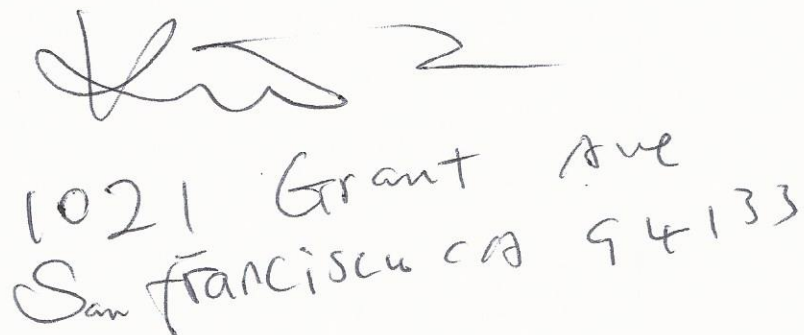 1021 Grant Ave
San Francisco CA 94133